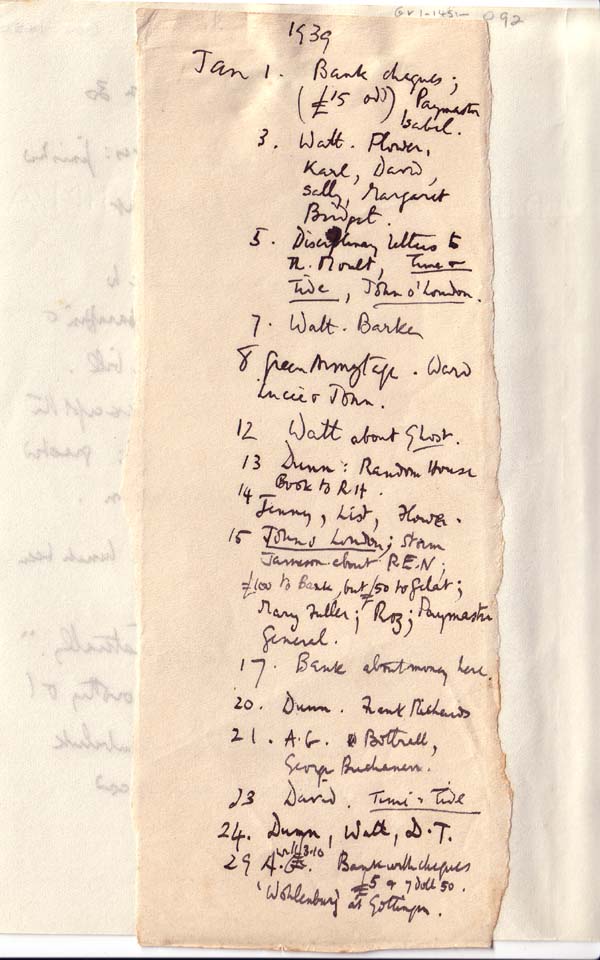 GV1-1451- 092
1939
Jan 1. Bank cheques;
(£15 odd) Paymaster
Isabel.
3. Watt. Flower,
Karl, David,
Sally, Margaret
Bridget.
5. Disciplinary letters to
Th. Moult, Time &
Tide, John o' London.
7. Watt. Barker
8 Green Armytage. Ward
Lucie & John.
12 Watt about Ghost.
13 Dunn: Random House
Book to R.H.
14 Jenny, List, Flower.
15 John o London; Storm
Jameson about P.E.N;
£100 to Bank, but £50 to Gelat;
Mary Fuller; Roz; Paymaster
General.
17. Bank about money here.
20. Dunn. Frank Richards
21. A.G. Bottrall,
George Buchanan.
23 David. Time & Tide
24. Dunn, Watt, D.T.
29 A.G. Bank with cheques
£5 & 7 doll 50.
'Wohlenburg at Gottingen.